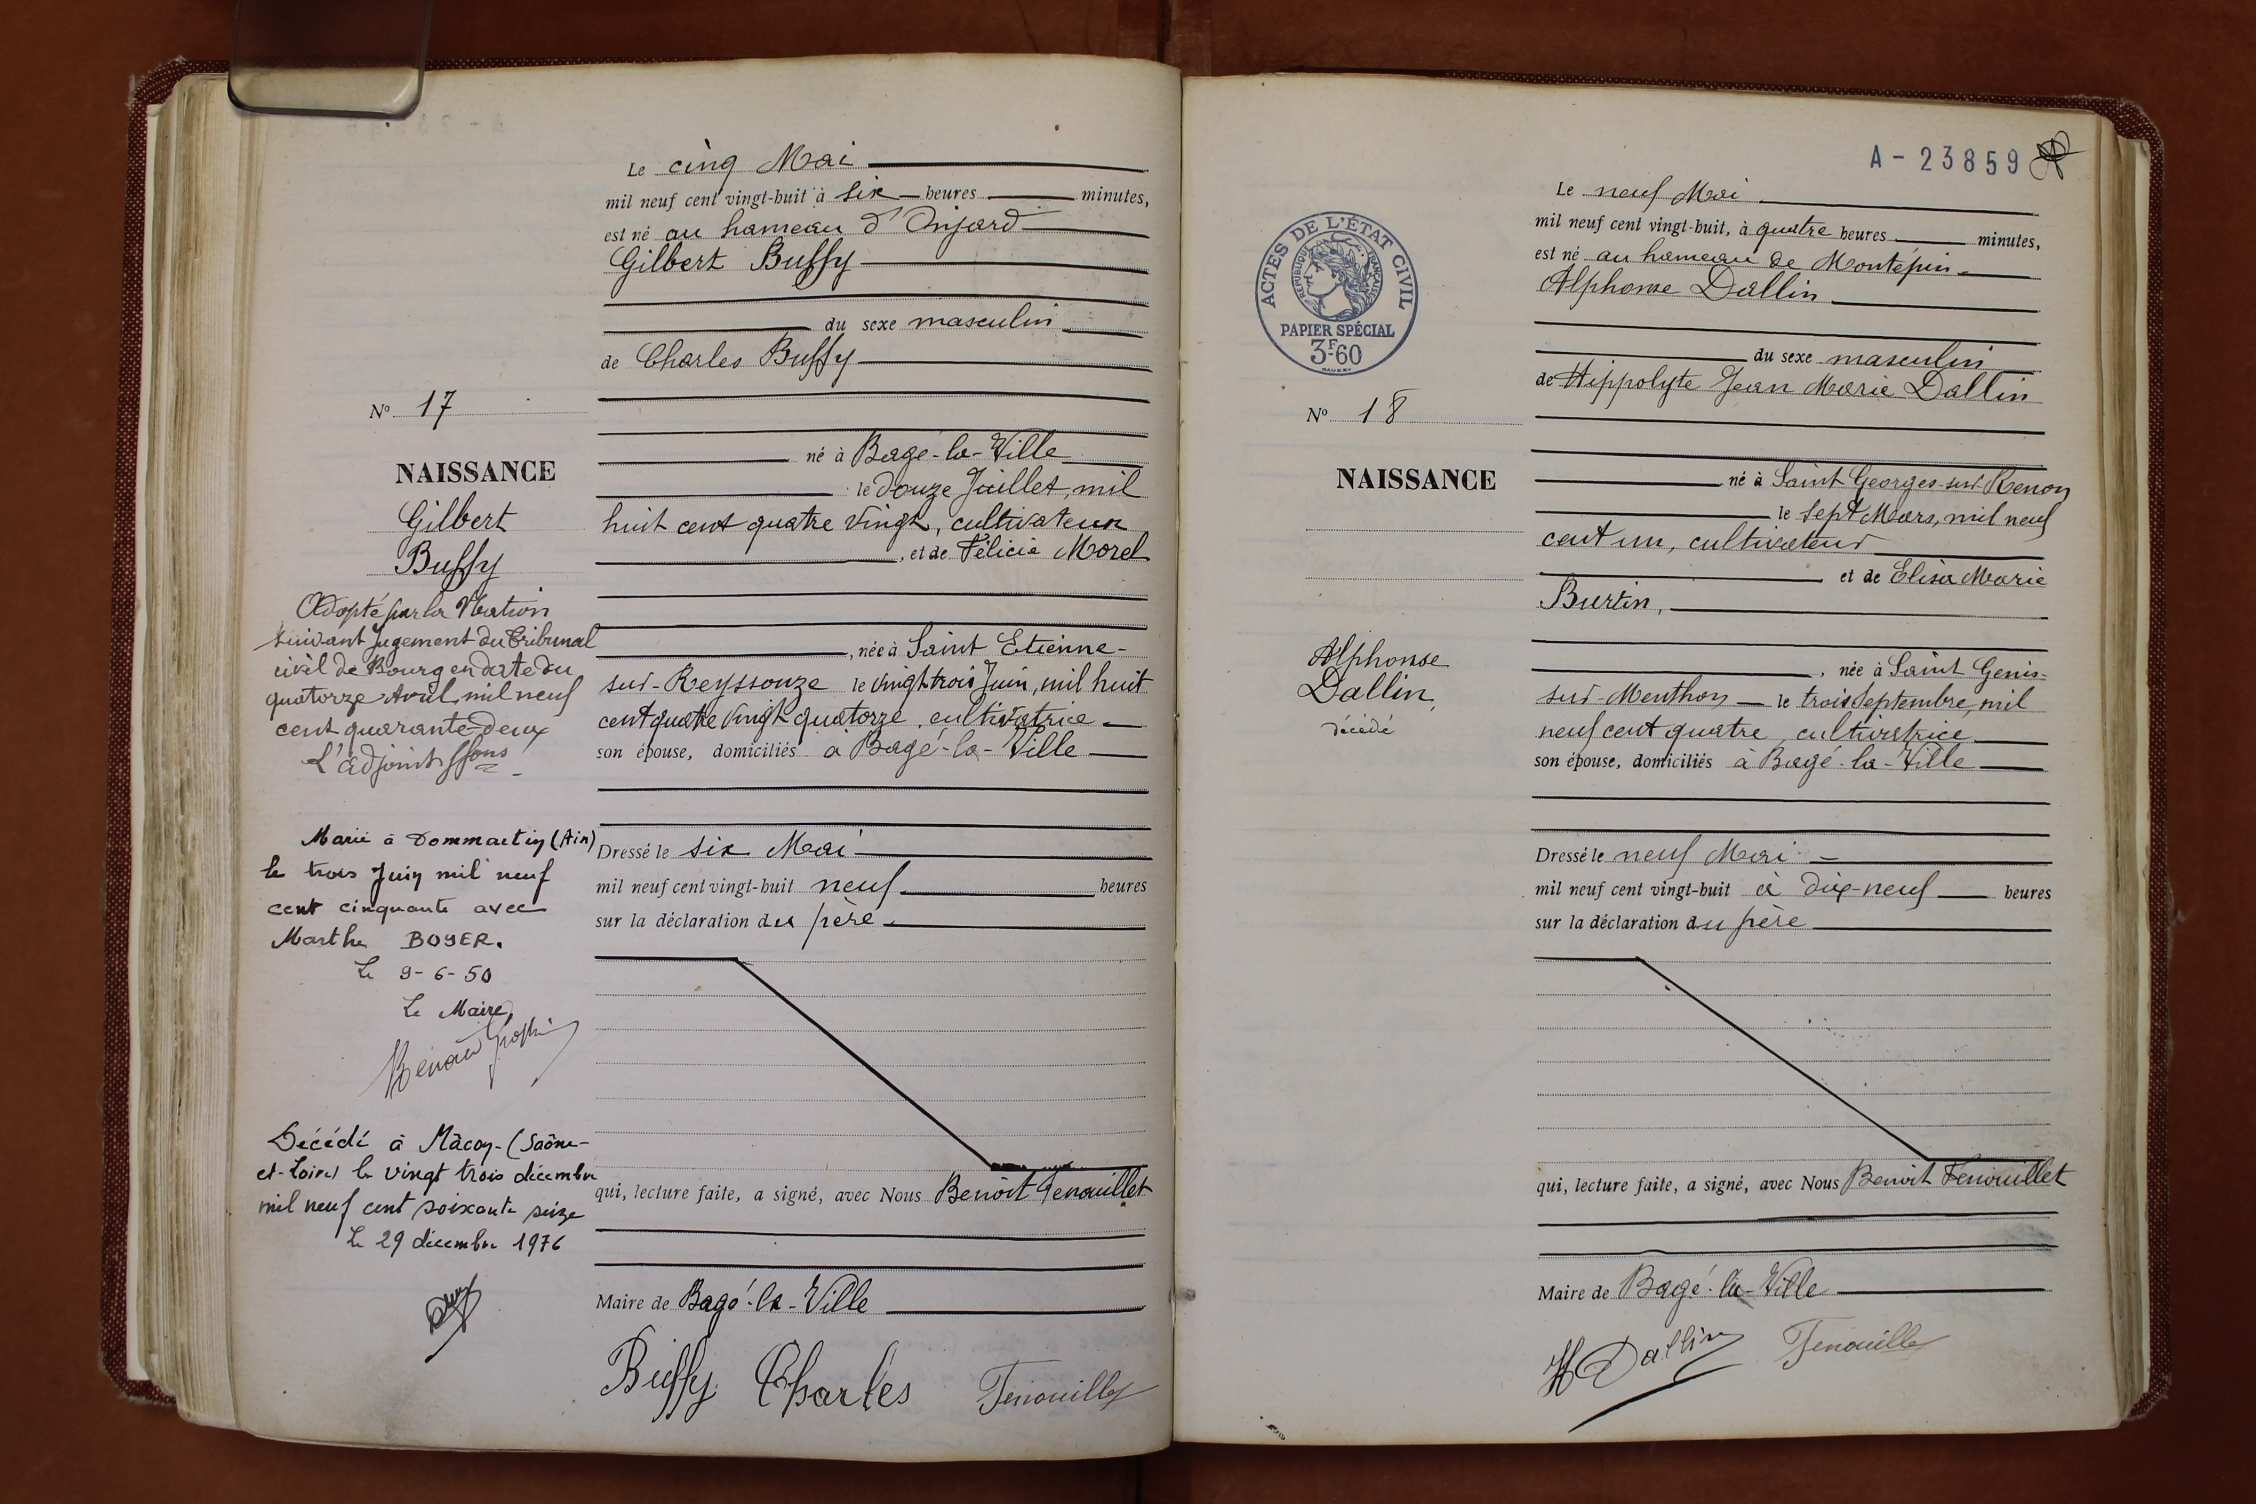 Le cinq Mai
mil neuf cent vingt-huit à six heures minutes,
est né au hameau d'Onjard
Gilbert Buffy
du sexe masculin
de Charles Buffy
né à Bagé-la-Ville
le douze Juillet, mil
huit cent quatre vingt, cultivateur
, et de Félicie Morel
, née à Saint Etienne-
sur-Reyssouze le vingt trois Juin, mil huit
cent quatre vingt quatorze, cultivatrice
son épouse, domiciliés à Bagé-la-Ville
Dressé le six Mai
mil neuf cent vingt-huit neuf heures
sur la déclaration du père
qui, lecture faite, a signé, avec Nous Benoit Fenouillet
Maire de Bagé-la-Ville
Buffy Charles Fenouillet
No 17
NAISSANCE
Gilbert
Buffy
Adopté par la Nation
suivant Jugement du Tribunal
civil de Bourg en date du
quatorze Avril mil neuf
cent quarante-deux
L'adjoint
Marié à Dommartin (Ain)
le trois Juin mil neuf
cent cinquante avec
Marthe BOYER.
Le 9-6-50
Le Maire,
Décédé à Mâcon (Saône-
et-Loire) le vingt trois décembre
mil neuf cent soixante seize
Le 29 décembre 1976
A-23859
Le neuf Mai
mil neuf cent vingt-huit, à quatre heures minutes,
est né au hameau de Montépin
Alphonse Dallin
du sexe masculin
de Hippolyte Jean Marie Dallin
né à Saint Georges-sur-Renon
le sept Mars, mil neuf
cent un, cultivateur
et de Elisa Marie
Burtin,
, née à Saint Genis-
sur-Menthon le trois Septembre, mil
neuf cent quatre, cultivatrice
son épouse, domiciliés à Bagé-la-Ville
Dressé le neuf Mai
mil neuf cent vingt-huit à dix-neuf heures
sur la déclaration du père
qui, lecture faite, a signé, avec Nous Benoit Fenouillet
Maire de Bagé-la-Ville
H Dallin Fenouillet
ACTES DE L'ÉTAT CIVIL
RÉPUBLIQUE FRANÇAISE
PAPIER SPÉCIAL
3F60
No 18
NAISSANCE
Alphonse
Dallin,
décédé